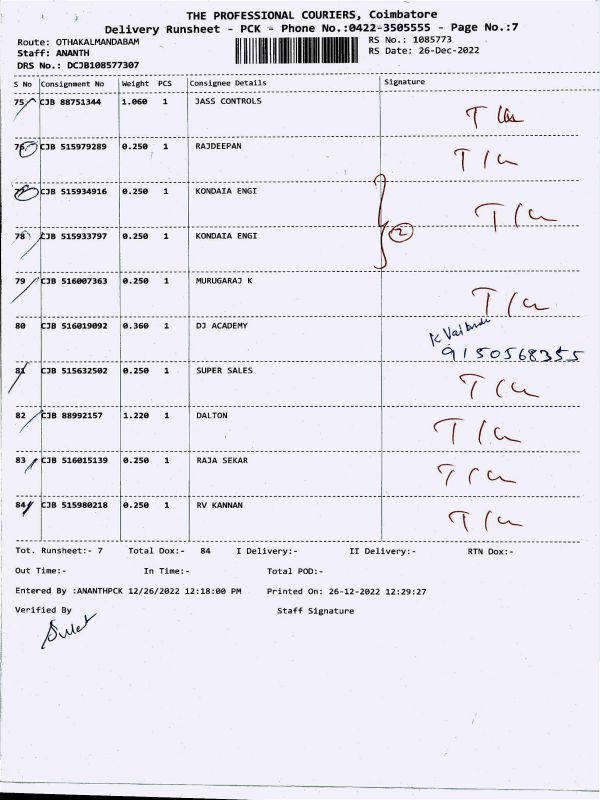 THE PROFESSIONAL COURIERS, Coimbatore
Delivery Runsheet - PCK - Phone No.:0422-3505555 - Page No.:7
Route: OTHAKALMANDABAM
RS No.: 1085773
Staff: ANANTH
RS Date: 26-Dec-2022
DRS No.: DCJB108577307
S No Consignment No Weight PCS Consignee Details Signature
75 CJB 88751344 1.060 1 JASS CONTROLS
76 CJB 515979289 0.250 1 RAJDEEPAN
77 CJB 515934916 0.250 1 KONDAIA ENGI
2
78 CJB 515933797 0.250 1 KONDAIA ENGI
79 CJB 516007363 0.250 1 MURUGARAJ K
80 CJB 516019092 0.360 1 DJ ACADEMY
9150568355
81 CJB 515632502 0.250 1 SUPER SALES
82 CJB 88992157 1.220 1 DALTON
83 CJB 516015139 0.250 1 RAJA SEKAR
84 CJB 515980218 0.250 1 RV KANNAN
Tot. Runsheet:- 7 Total Dox:- 84 I Delivery:- II Delivery:- RTN Dox:-
Out Time:- In Time:- Total POD:-
Entered By :ANANTHPCK 12/26/2022 12:18:00 PM Printed On: 26-12-2022 12:29:27
Verified By Staff Signature